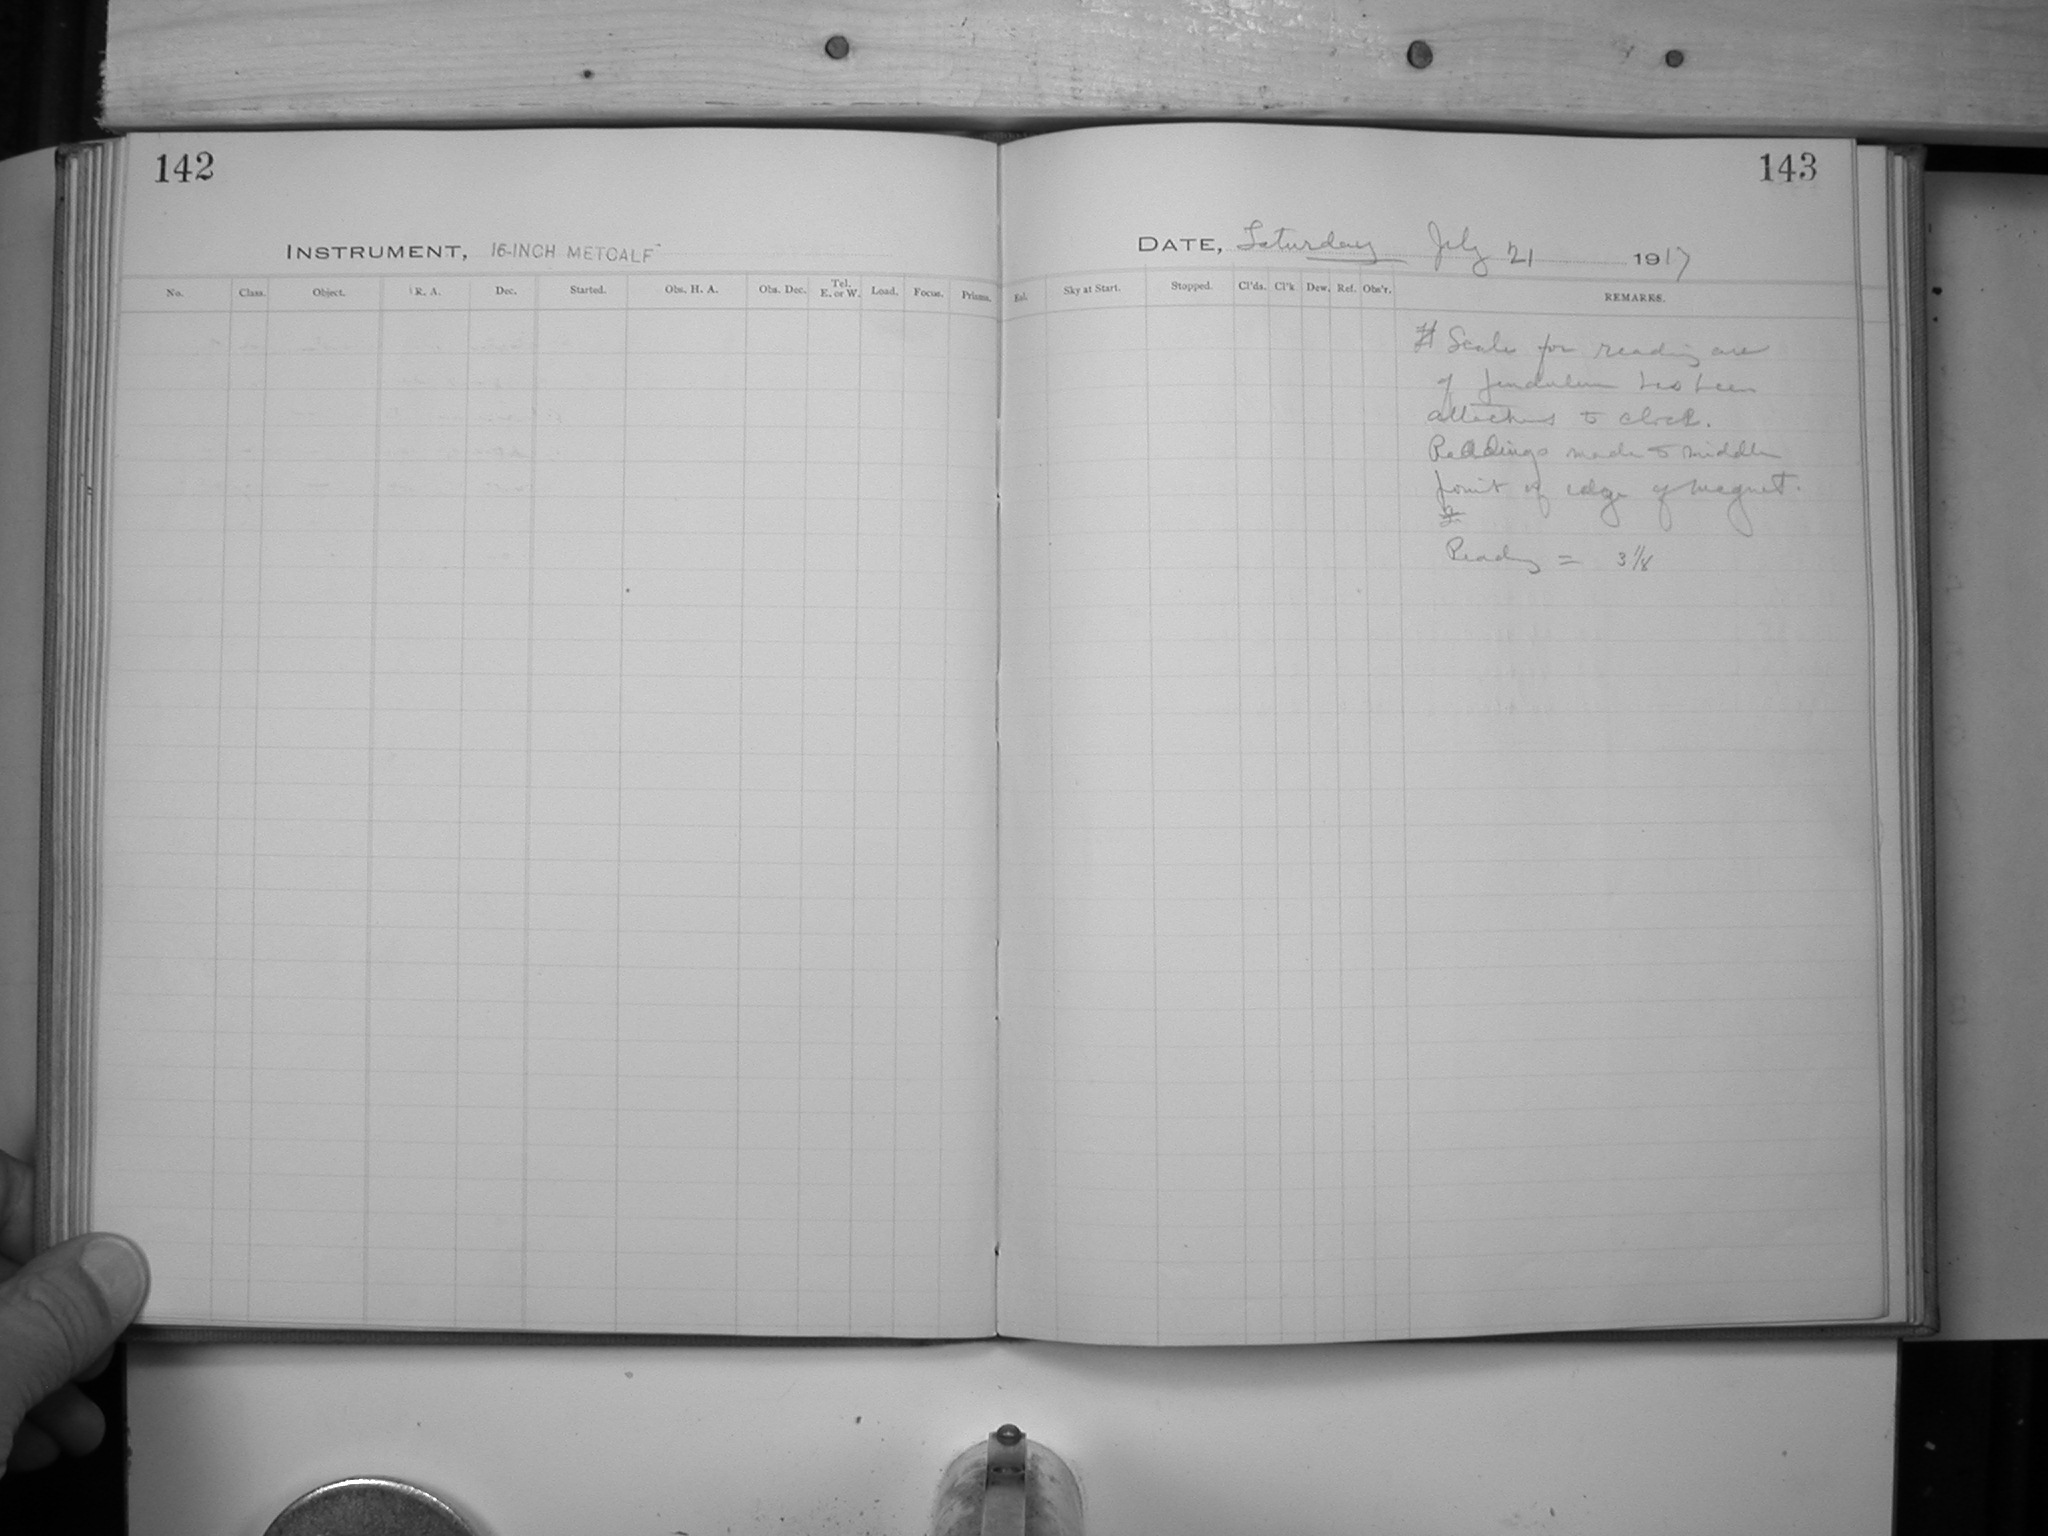 142
143
INSTRUMENT, 16-INCH METCALF
DATE, Saturday July 21 1917
No. Class. Object. R. A. Dec. Started. Obs. H. A. Obs. Dec. Tel. E. or W. Load. Focus. Prisms. Exl. Sky at Start. Stopped. Cl'ds. Cl'k Dew. Ref. Obs'r. REMARKS.
# Scale for reading arc
of pendulum has been
attached to clock.
Readings made to middle
point of edge of magnet.
Reading = 3 1/8